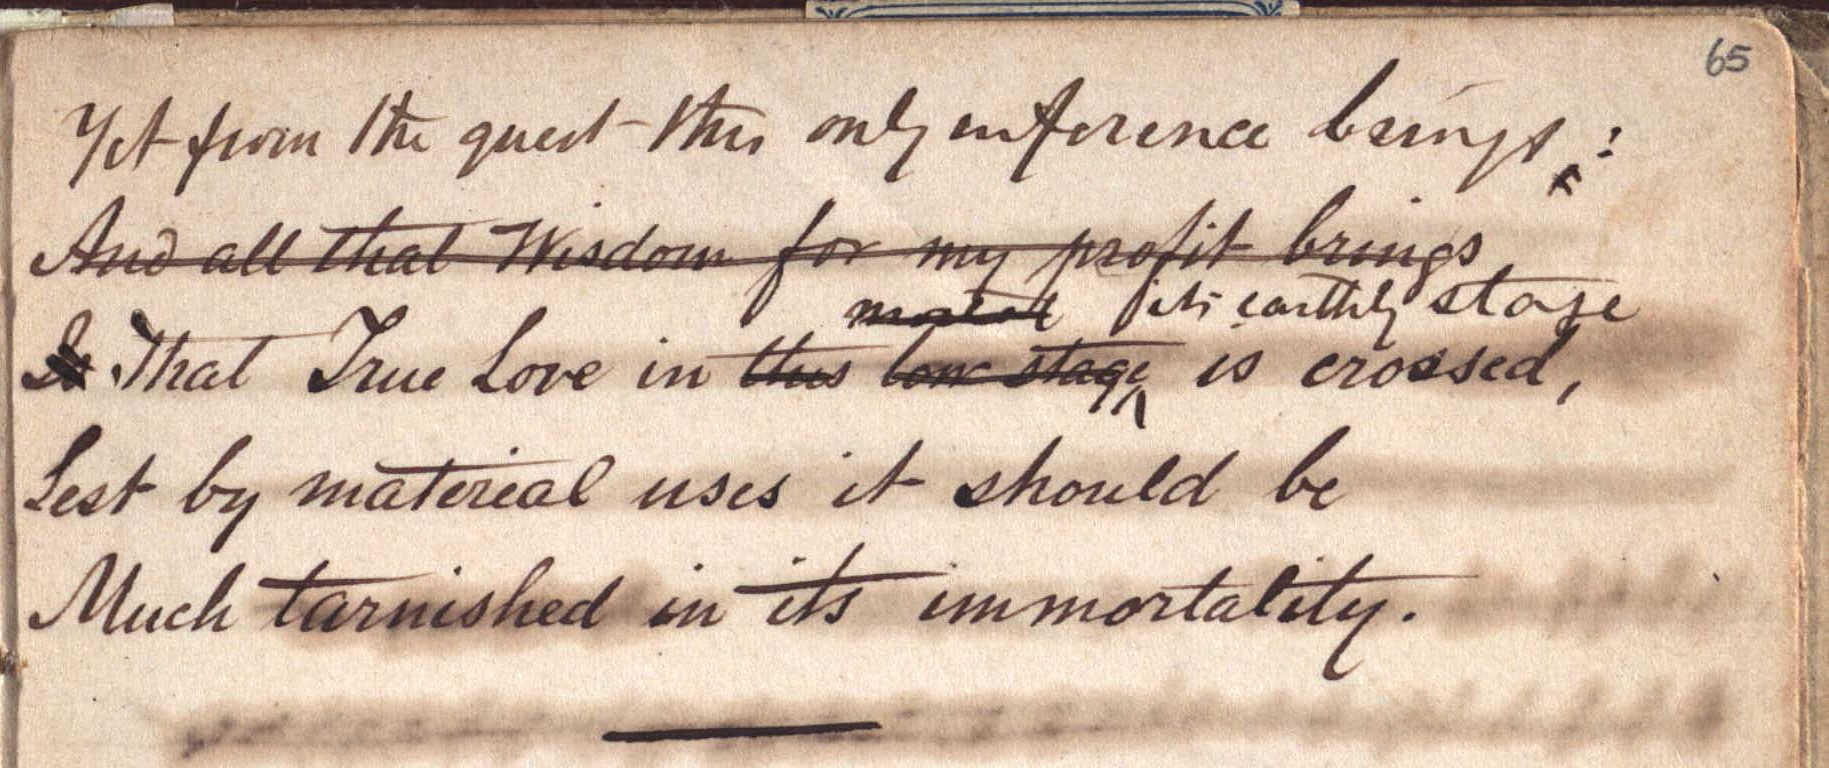 65
Yet from the quest this only inference brings:
And all that Wisdom for my profit brings
mortal its earthly stage
Is That True Love in this low stage is crossed,
Lest by material uses it should be
Much tarnished in its immortality.